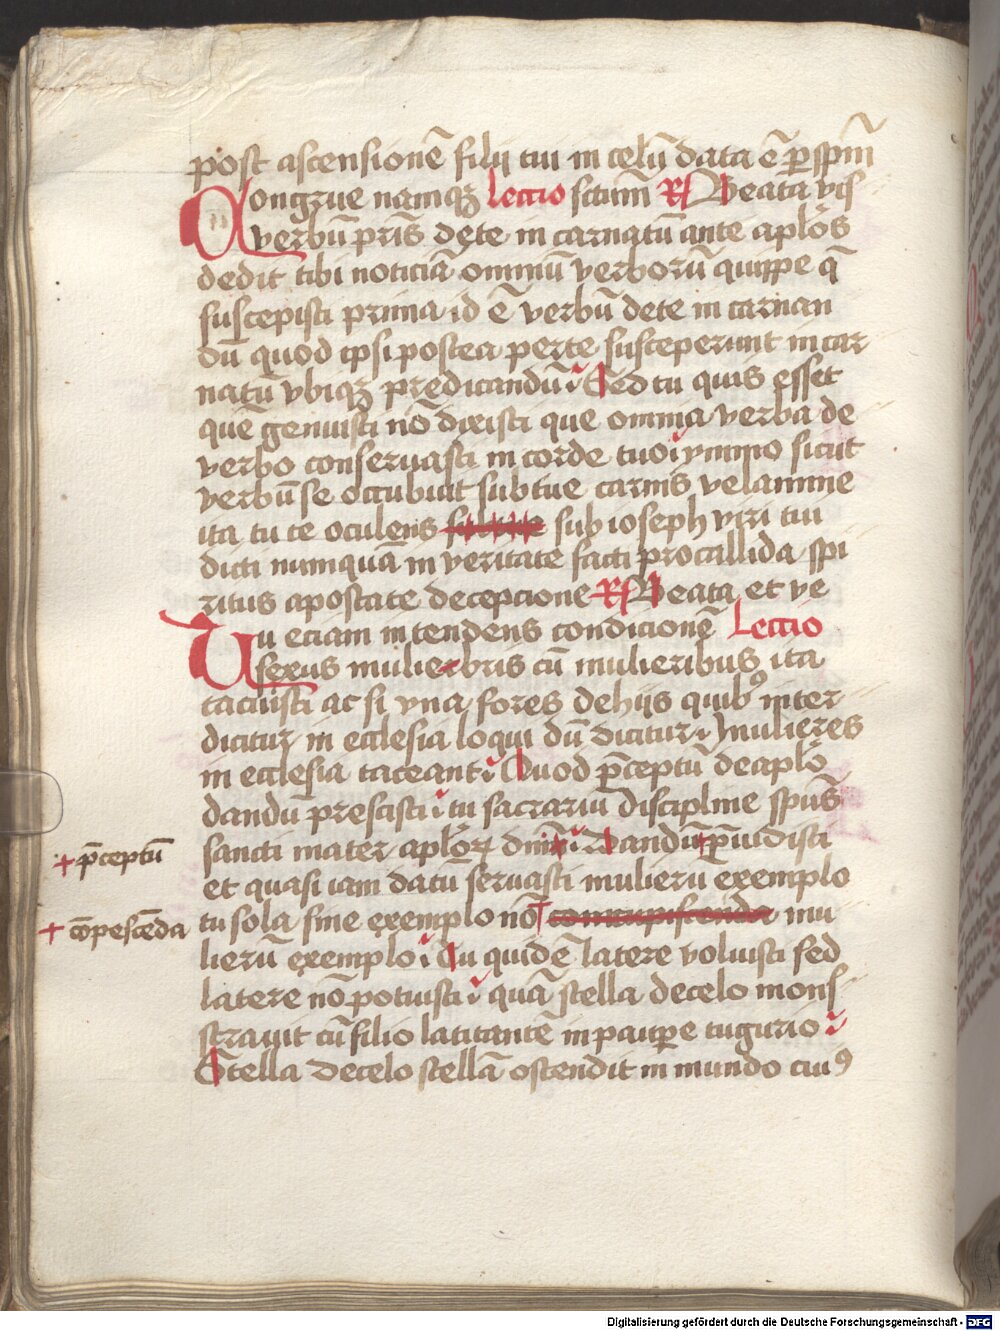 post ascensionē filij tui in celū data ē ꝑ spm̄
Congrue namqꝫ Lectio scdm̄ R Beata vis
verbū pris̄ de te in carnatū ante aplōs
dedit tibi noticiā omniū verborū quippe q̄
suscepisti prima id ē verbū de te in carnan
dū quod ipsi postea per te susceperunt in car
natū vbiqꝫ predicandū Sed tu quis esset
quē genuisti nō dixisti que omnia verba de
verbo conseruasti in corde tuo ymmo sicut
verbū se occubuit sub tue carnis velamine
ita tu te oculens sub ioseph viri tui
dicti numquā in veritate facti pro callida spi
ritus apostate decepcione R Beata et ve
Tu eciam intendens condicionē Lectio
sexus muliebris cū mulieribus ita
tacuisti ac si vna fores de hijs quibꝰ inter
dicitur in ecclesia loqui dū dicitur Mulieres
in ecclesia taceant Quod p̄ceptū de aplō
dandū prescisti tu sacrariū discipline spūs
sancti mater aplōꝝ dandū p̄uidisti
+ p̄ceptū
et quasi iam datū seruasti mulierū exemplo
tu sola sine exemplo nō mu
+ cōpescēda
lierū exemplo Tu quidē latere voluisti sed
latere nō potuisti quā stella de celo mons
strauit cū filio latitantē in pauꝑe tugurio
Stella de celo stellā ostendit in mundo cuiꝰ
Digitalisierung gefördert durch die Deutsche Forschungsgemeinschaft - DFG